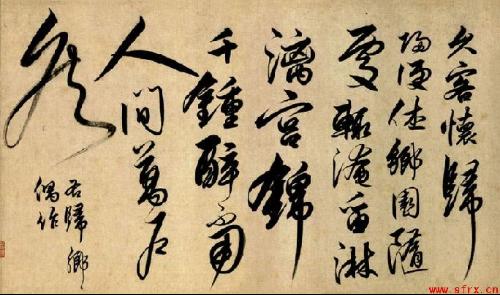 久客懷歸
歸鄉園隨
處輒淹留淋
漓宮錦
千鍾醉不
人間萬戶
侯
右歸鄉
偶作
www.sfrx.cn